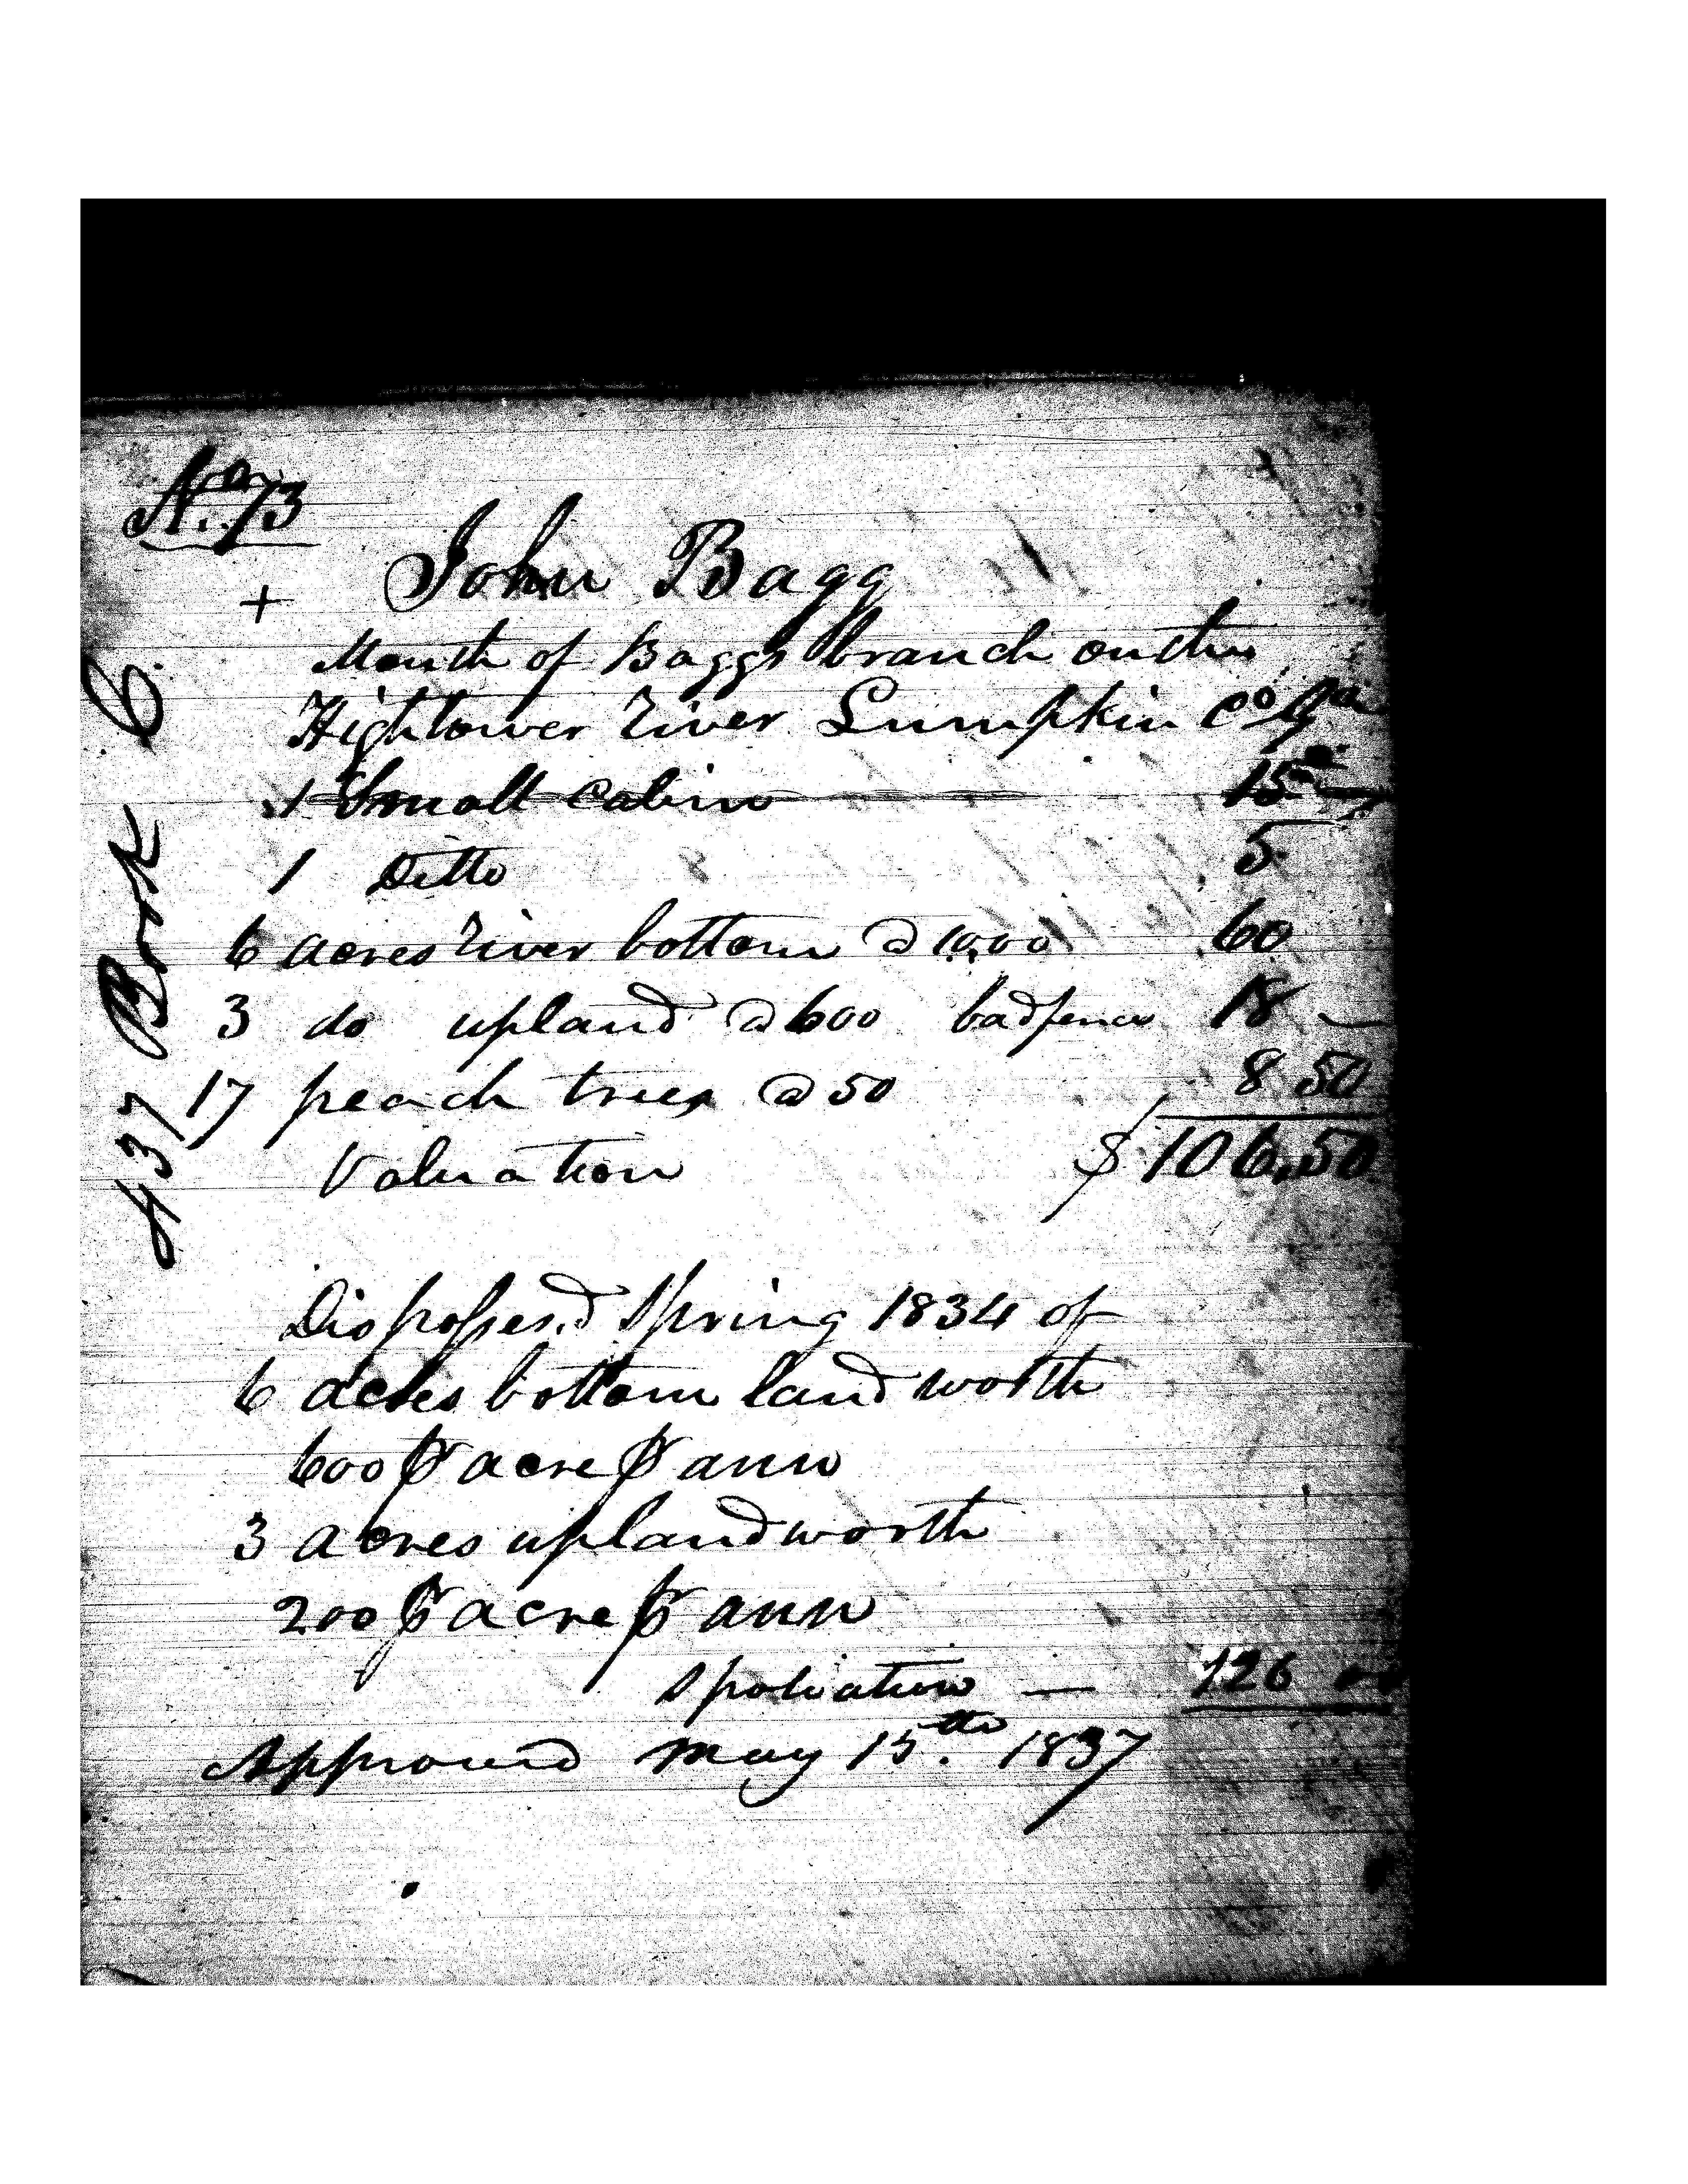 No. 73
+ John Bagg
Mouth of Baggs branch on the
Hightower River Lumpkin Co Ga
1 Small Cabin 15 —
1 Ditto 5
6 acres River bottom @ 10.00 60
3 do upland @ 600 bad fence 18 —
17 peach trees @ 50 8 50
Valuation $ 106.50
Dispossesd Spring 1834 of
6 acres bottom land worth
600 ⅌ acre ⅌ ann
3 acres upland worth
200 ⅌ acre ⅌ ann
Spoliation — 126
Approved May 15th 1837
437 Book C.